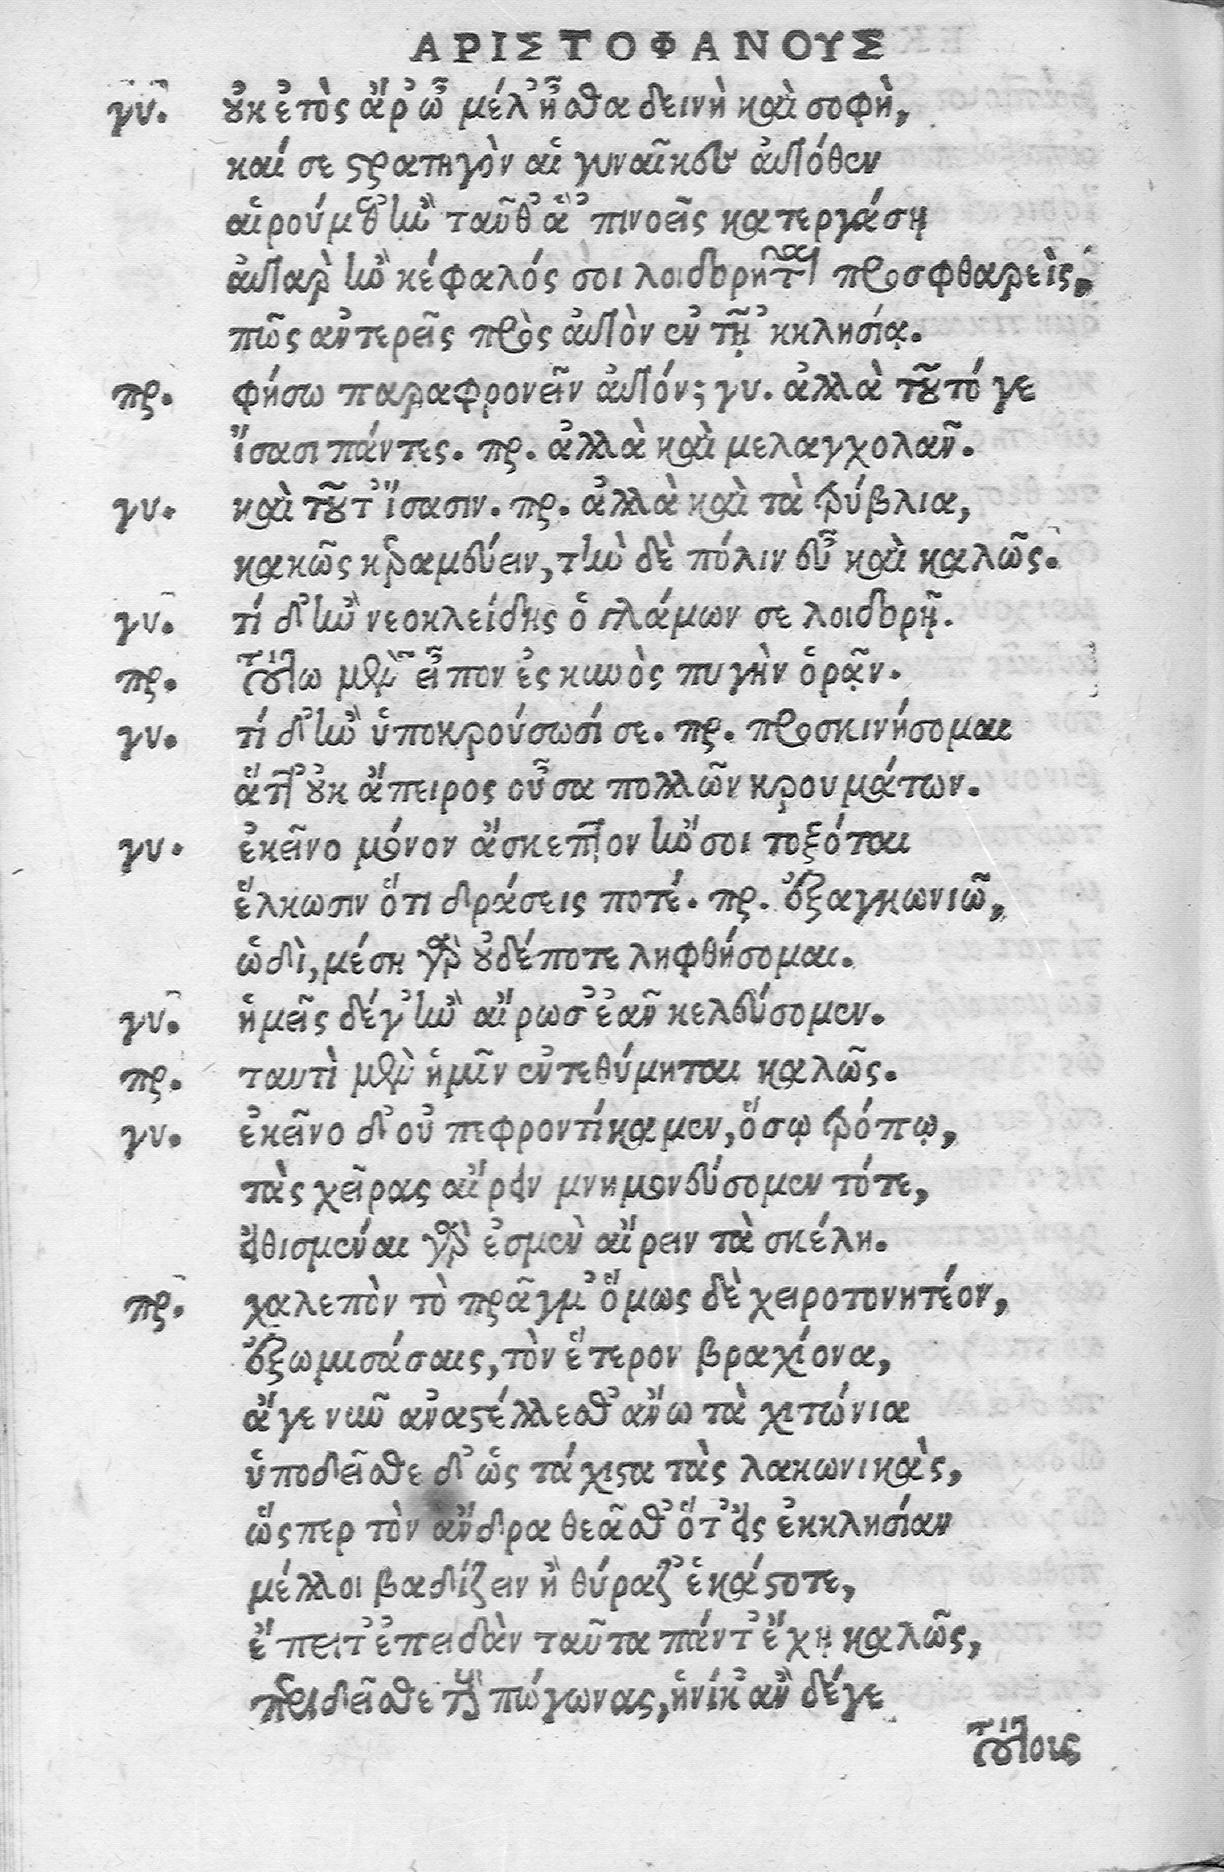 ΑΡΙΣΤΟΦΑΝΟΥΣ
γυ. οὐκ ἐτὸς ἄρ' ὦ μέλ' ἦσθα δεινὴ καὶ σοφὴ,
καί σε στρατηγὸν αἱ γυναῖκες αὐτόθεν
αἱρούμεθ' ἢν ταῦθ' ἃ 'πινοεῖς κατεργάσῃ
ἀτὰρ ἢν κέφαλός σοι λοιδορῆται προσφθαρεὶς,
πῶς ἀντερεῖς πρὸς αὐτὸν ἐν τῇ 'κκλησίᾳ.
πρ. φήσω παραφρονεῖν αὐτόν; γυ. ἀλλὰ τοῦτό γε
ἴσασι πάντες. πρ. ἀλλὰ καὶ μελαγχολᾶν.
γυ. καὶ τοῦτ' ἴσασιν. πρ. ἀλλὰ καὶ τὰ τρύβλια,
κακῶς κραμεύειν, τὴν δὲ πόλιν εὖ καὶ καλῶς.
γυ. τί δ' ἢν νεοκλείδης ὁ γλάμων σε λοιδορῇ.
πρ. τούτῳ μὲν εἶπον ἐς κυνὸς πυγὴν ὁρᾶν.
γυ. τί δ' ἢν ὑποκρούσωσί σε. πρ. προσκινήσομαι
ἅτ' οὐκ ἄπειρος οὖσα πολλῶν κρουμάτων.
γυ. ἐκεῖνο μόνον ἄσκεπτον ἤν σοι τοξόται
ἕλκωσιν ὅτι δράσεις ποτέ. πρ. ἐξαγκωνιῶ,
ὡδὶ, μέση γὰρ οὐδέποτε ληφθήσομαι.
γυ. ἡμεῖς δέγ' ἢν αἴρωσ' ἐᾶν κελεύσομεν.
πρ. ταυτὶ μὲν ἡμῖν ἐντεθύμηται καλῶς.
γυ. ἐκεῖνο δ' οὐ πεφροντίκαμεν, ὅσῳ τρόπῳ,
τὰς χεῖρας αἴρειν μνημονεύσομεν τότε,
εἰθισμέναι γὰρ ἐσμὲν αἴρειν τὰ σκέλη.
πρ. χαλεπὸν τὸ πρᾶγμ' ὅμως δὲ χειροτονητέον,
ἐξωμισάσαις, τὸν ἕτερον βραχίονα,
ἄγε νῦν ἀναστέλλεσθ' ἄνω τὰ χιτώνια
ὑποδεῖσθε δ' ὡς τάχιστα τὰς λακωνικὰς,
ὥσπερ τὸν ἄνδρα θεᾶσθ' ὅτ' εἰς ἐκκλησίαν
μέλλοι βαδίζειν ἢ θύραζ' ἑκάστοτε,
ἔπειτ' ἐπειδὰν ταῦτα πάντ' ἔχῃ καλῶς,
περιδεῖσθε τοὺς πώγωνας, ἡνίκ' ἂν δέγε
τούτους